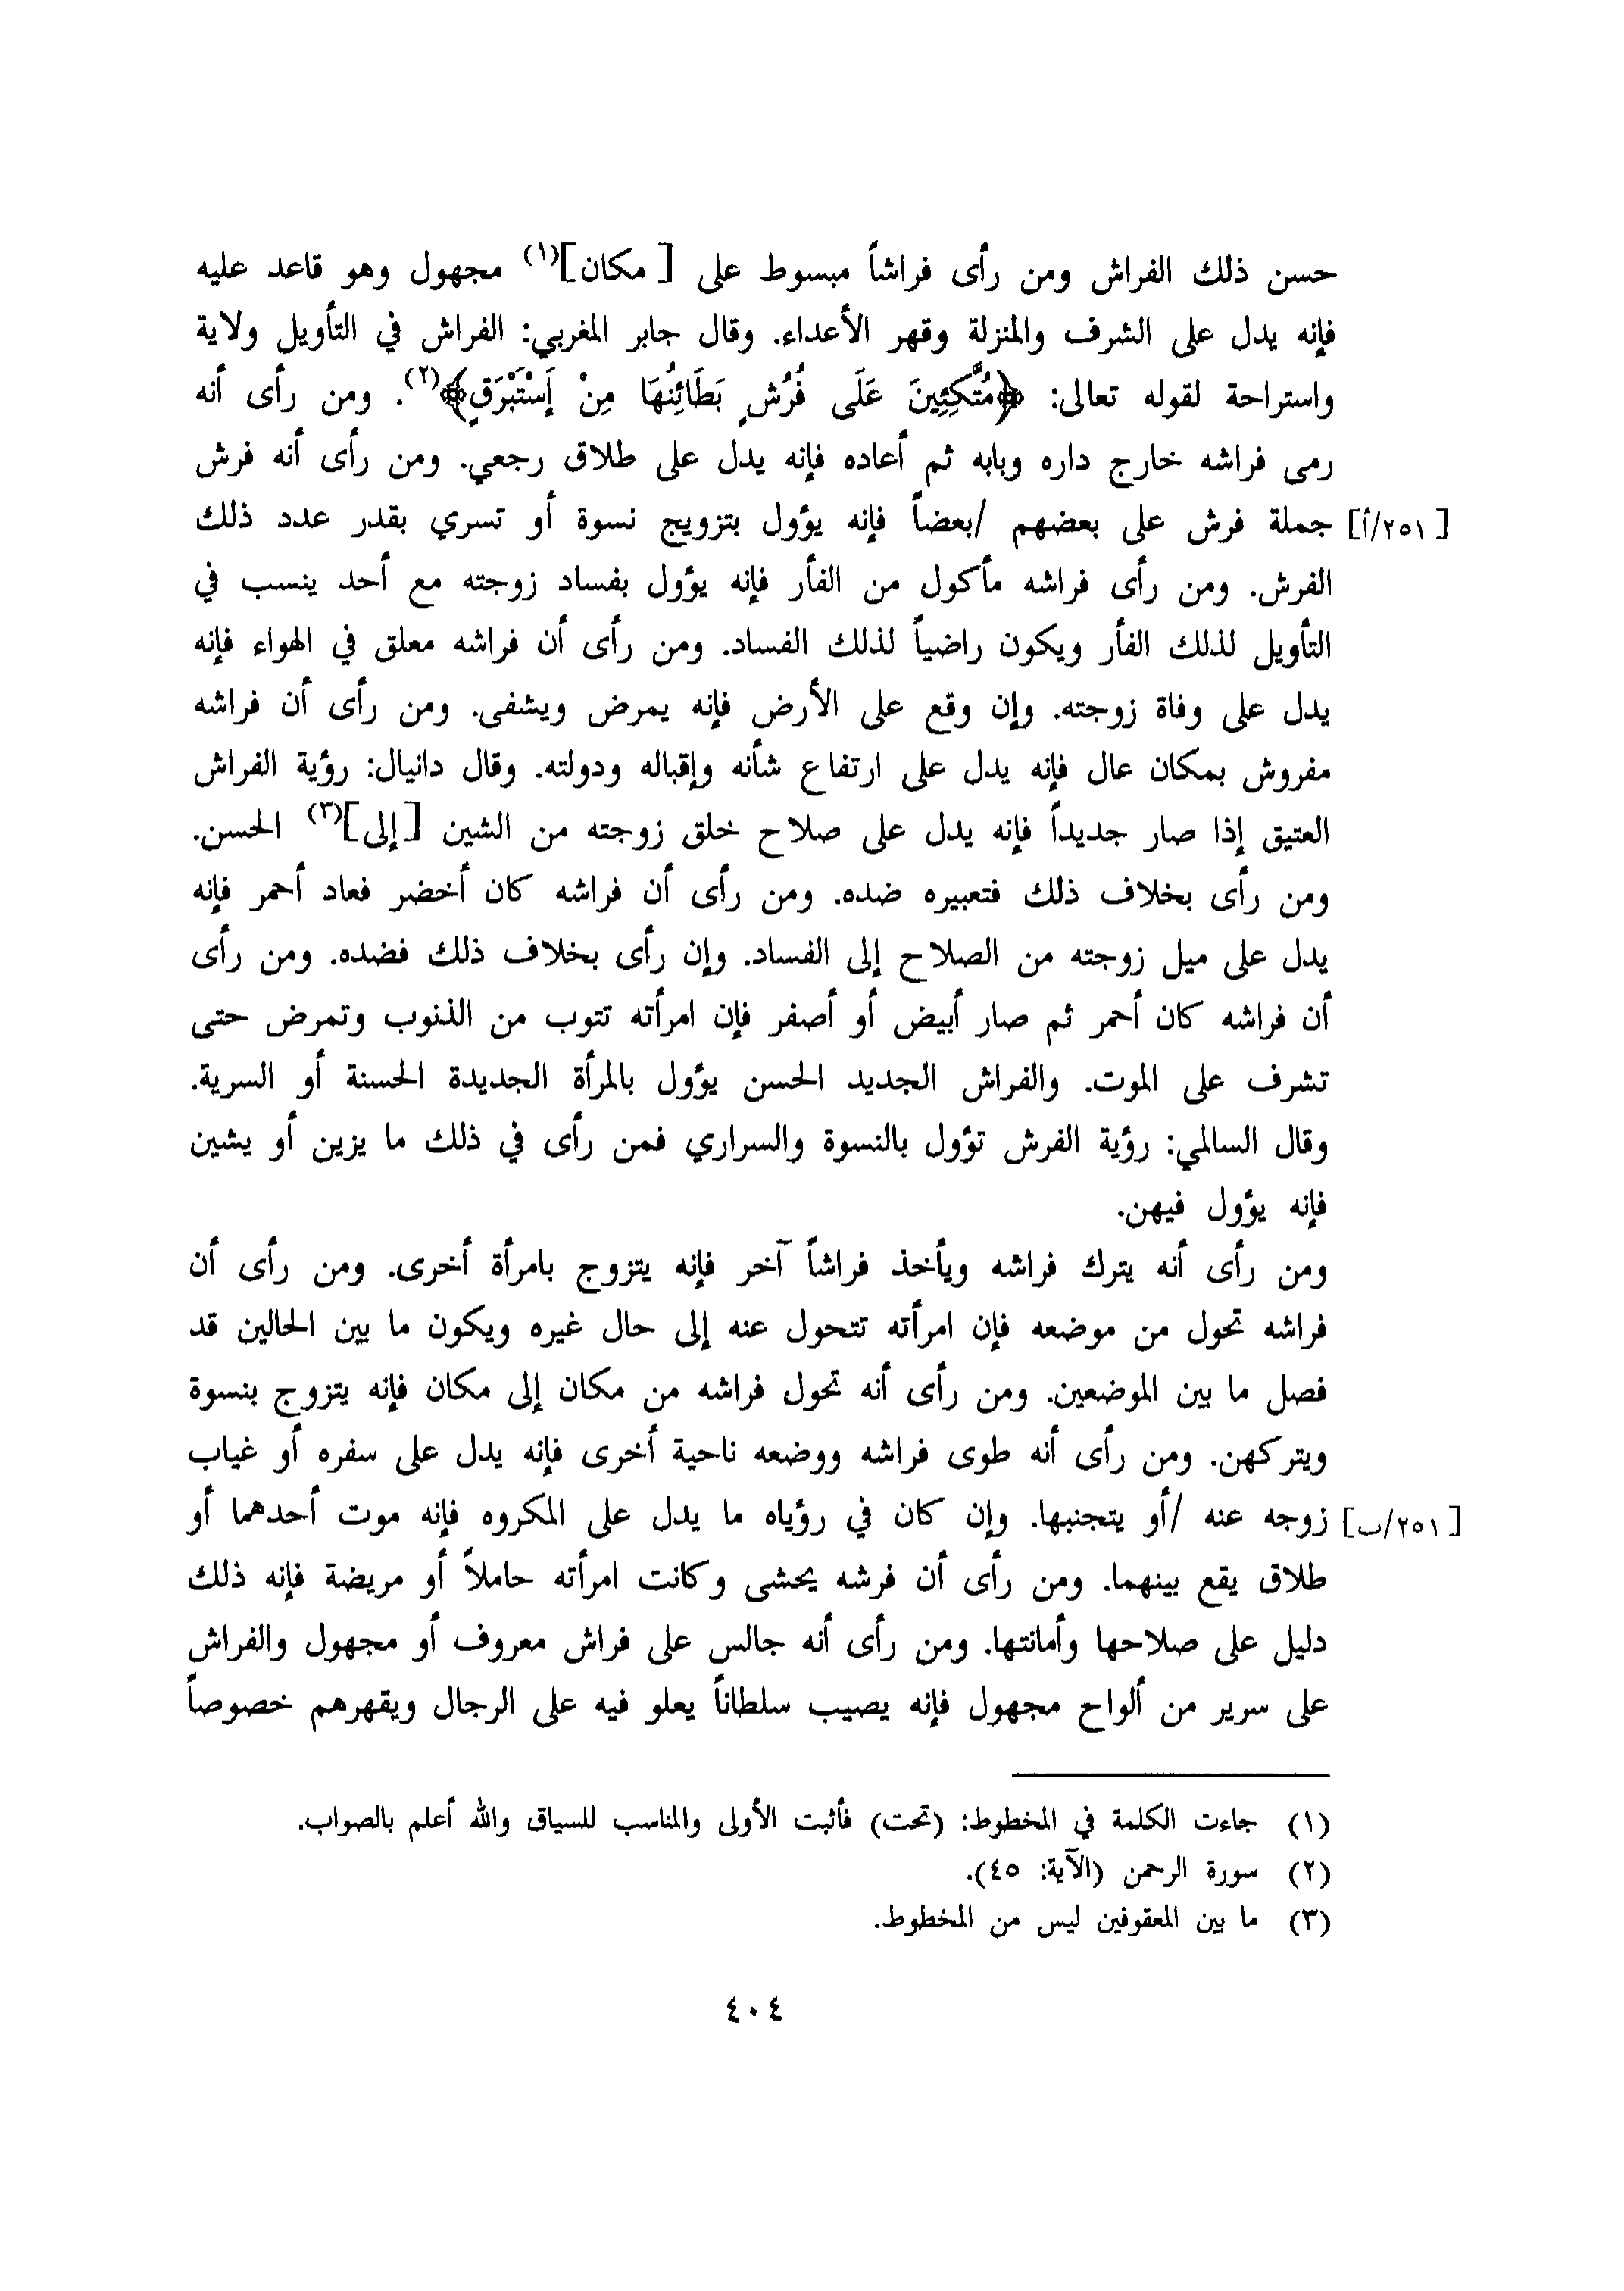 حسن ذلك الفراش ومن رأى فراشاً مبسوط على [مكان](١) مجهول وهو قاعد عليه
فإنه يدل على الشرف والمنزلة وقهر الأعداء. وقال جابر المغربي: الفراش في التأويل ولاية
واستراحة لقوله تعالى: ﴿مُتَّكِئِينَ عَلَى فُرُشٍ بَطَائِنُهَا مِنْ إَسْتَبْرَقٍ﴾(٢). ومن رأى أنه
رمى فراشه خارج داره وبابه ثم أعاده فإنه يدل على طلاق رجعي. ومن رأى أنه فرش
[٢٥١/أ] جملة فرش على بعضهم /بعضاً فإنه يؤول بتزويج نسوة أو تسري بقدر عدد ذلك
الفرش. ومن رأى فراشه مأكول من الفأر فإنه يؤول بفساد زوجته مع أحد ينسب في
التأويل لذلك الفأر ويكون راضياً لذلك الفساد. ومن رأى أن فراشه معلق في الهواء فإنه
يدل على وفاة زوجته. وإن وقع على الأرض فإنه يمرض ويشفى. ومن رأى أن فراشه
مفروش بمكان عال فإنه يدل على ارتفاع شأنه وإقباله ودولته. وقال دانيال: رؤية الفراش
العتيق إذا صار جديداً فإنه يدل على صلاح خلق زوجته من الشين [إلى](٣) الحسن.
ومن رأى بخلاف ذلك فتعبيره ضده. ومن رأى أن فراشه كان أخضر فعاد أحمر فإنه
يدل على ميل زوجته من الصلاح إلى الفساد. وإن رأى بخلاف ذلك فضده. ومن رأى
أن فراشه كان أحمر ثم صار أبيض أو أصفر فإن امرأته تتوب من الذنوب وتمرض حتى
تشرف على الموت. والفراش الجديد الحسن يؤول بالمرأة الجديدة الحسنة أو السرية.
وقال السالمي: رؤية الفرش تؤول بالنسوة والسراري فمن رأى في ذلك ما يزين أو يشين
فإنه يؤول فيهن.
ومن رأى أنه يترك فراشه ويأخذ فراشاً آخر فإنه يتزوج بامرأة أخرى. ومن رأى أن
فراشه تحول من موضعه فإن امرأته تتحول عنه إلى حال غيره ويكون ما بين الحالين قد
فصل ما بين الموضعين. ومن رأى أنه تحول فراشه من مكان إلى مكان فإنه يتزوج بنسوة
ويتركهن. ومن رأى أنه طوى فراشه ووضعه ناحية أخرى فإنه يدل على سفره أو غياب
[٢٥١/ب] زوجه عنه /أو يتجنبها. وإن كان في رؤياه ما يدل على المكروه فإنه موت أحدهما أو
طلاق يقع بينهما. ومن رأى أن فرشه يحشى وكانت امرأته حاملاً أو مريضة فإنه ذلك
دليل على صلاحها وأمانتها. ومن رأى أنه جالس على فراش معروف أو مجهول والفراش
على سرير من ألواح مجهول فإنه يصيب سلطاناً يعلو فيه على الرجال ويقهرهم خصوصاً
(١) جاءت الكلمة في المخطوط: (تحت) فأثبت الأولى والمناسب للسياق والله أعلم بالصواب.
(٢) سورة الرحمن (الآية: ٤٥).
(٣) ما بين المعقوفين ليس من المخطوط.
٤٠٤